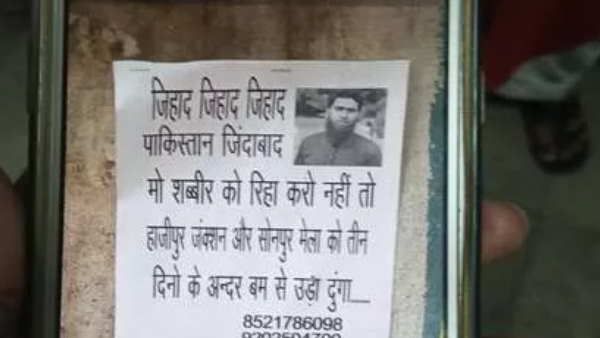 जिहाद जिहाद जिहाद
पाकिस्तान जिंदाबाद
मो शब्बीर को रिहा करो नहीं तो
हाजीपुर जंक्शन और सोनपुर मेला को तीन
दिनो के अन्दर बम से उड़ा दुंगा__
8521786098